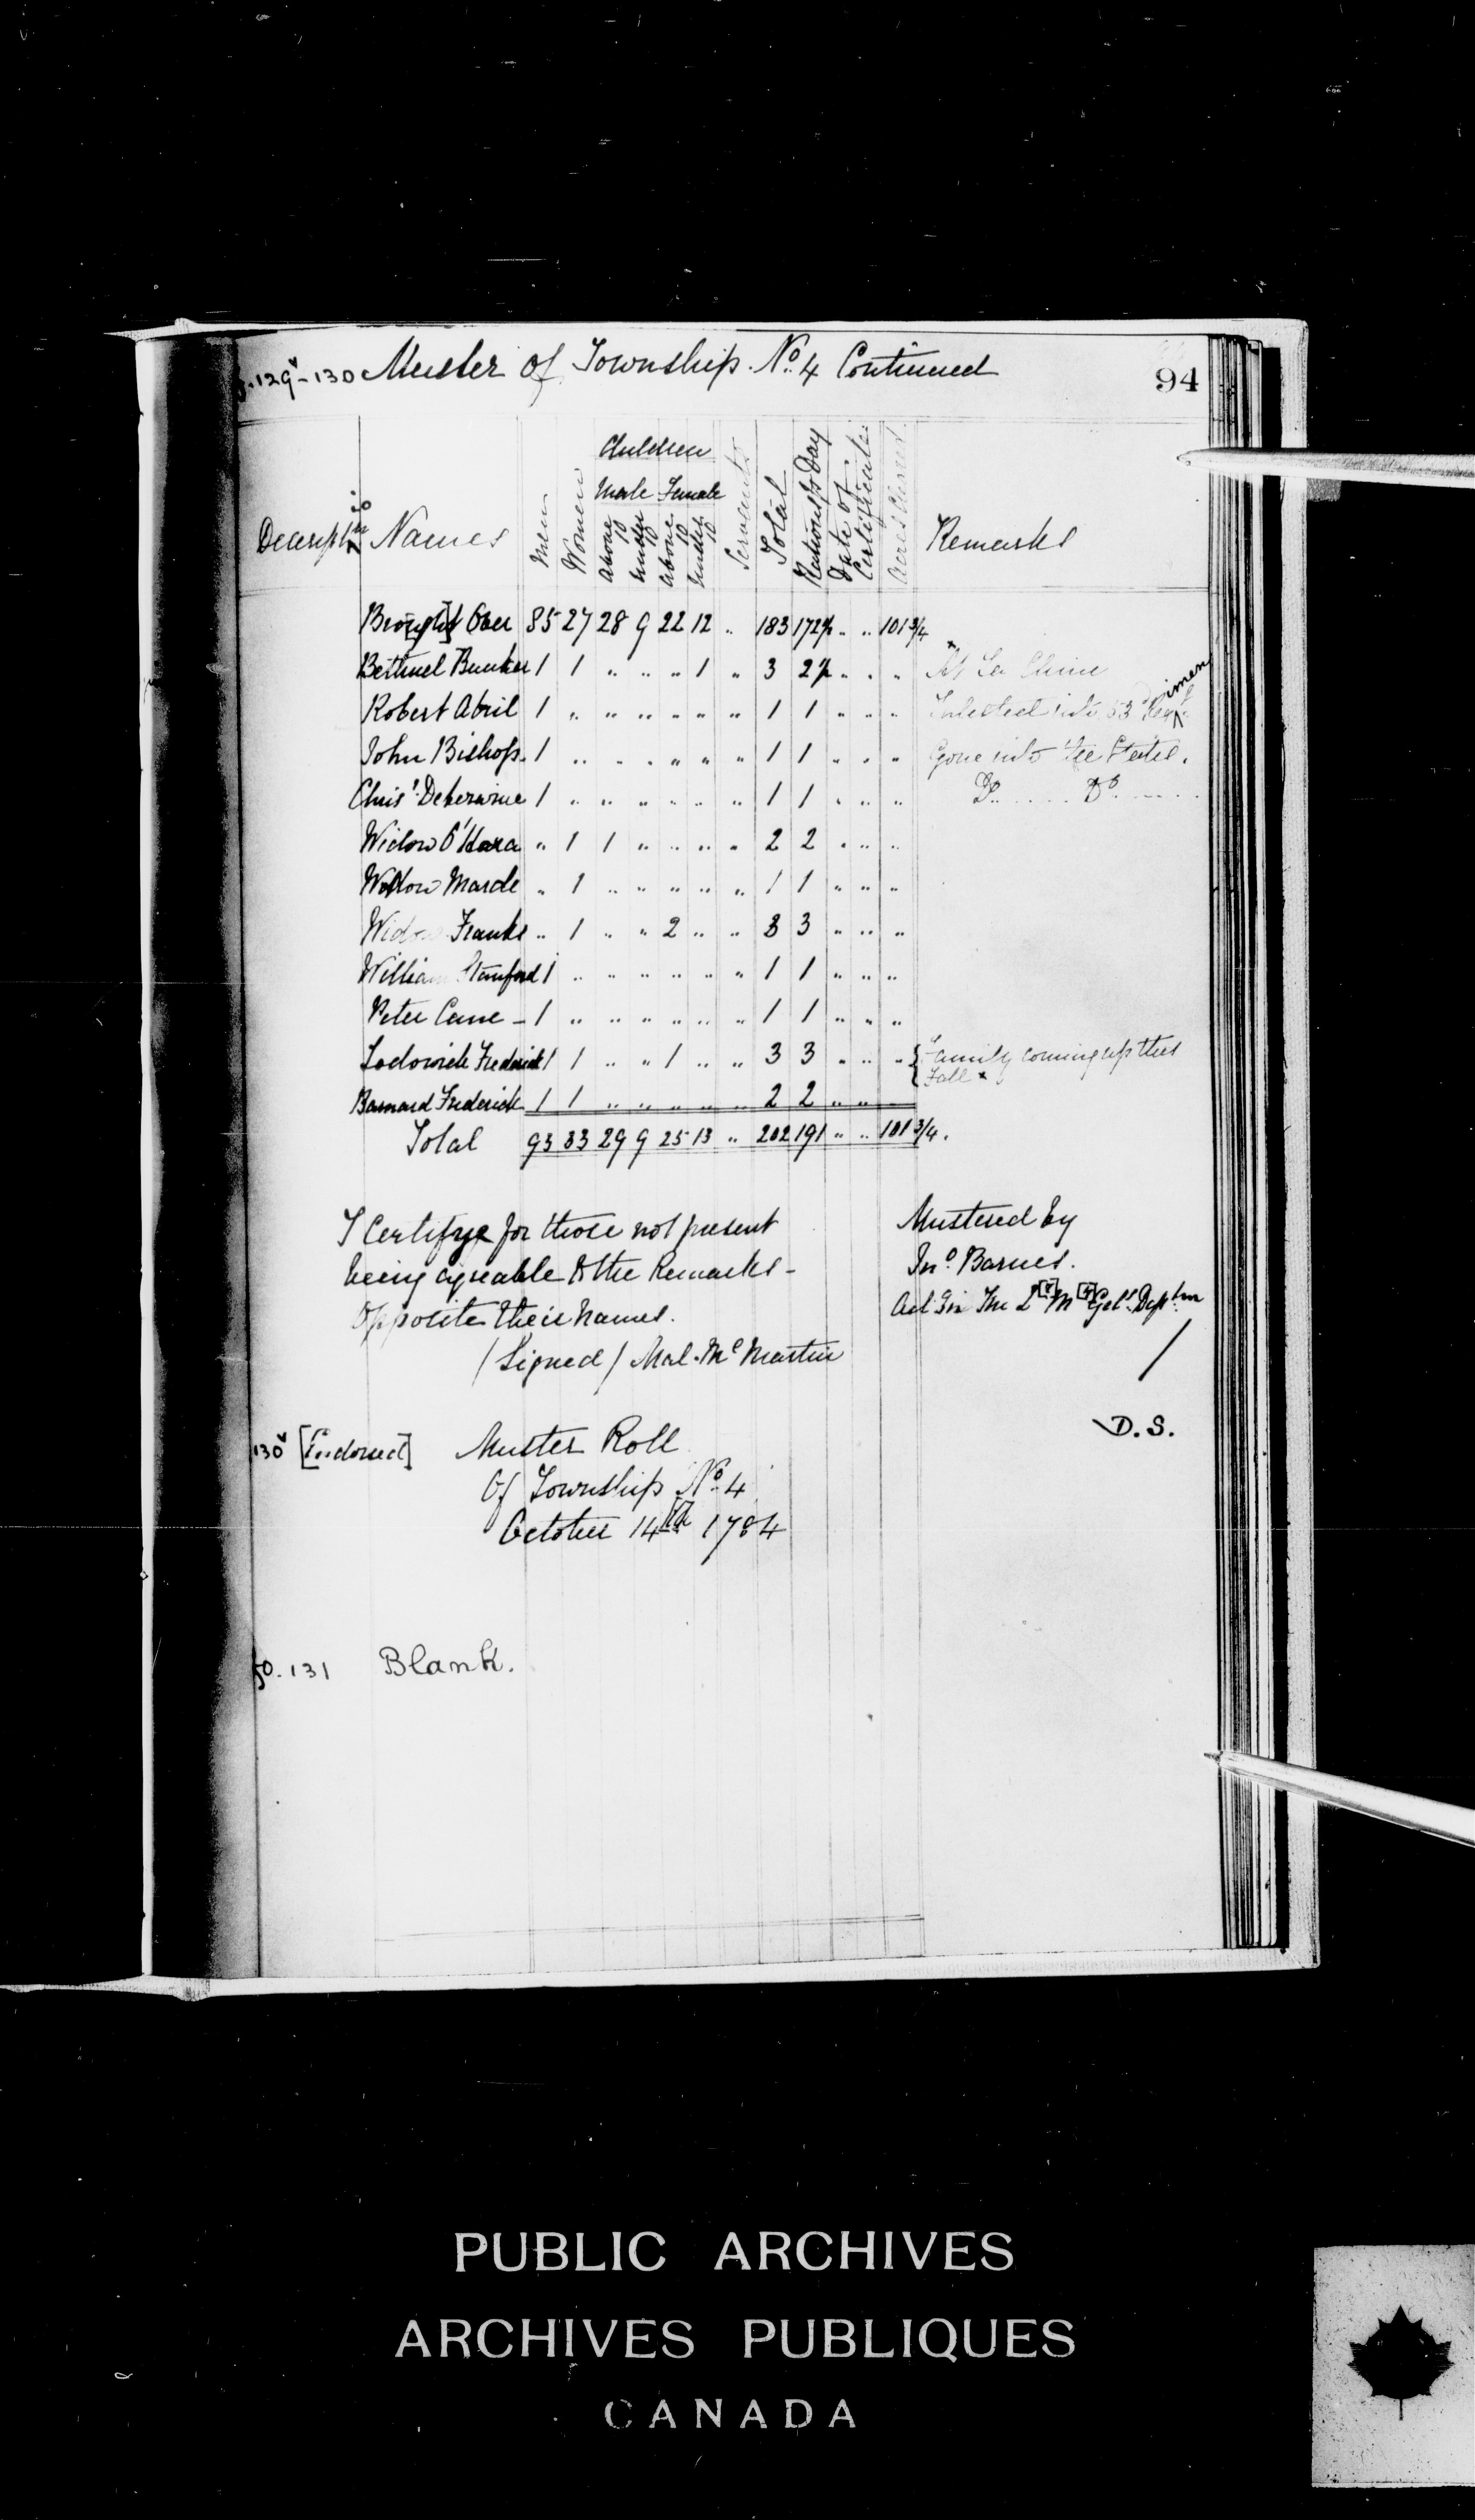 fo. 129v - 130 Muster of Township No. 4 Continued
94
Descriptio Names Men Women Children Male Above 10 Under 10 Female Above 10 Under 10 Servants Total Rations pr Day Date of Certificate Acres Clear'd Remarks
Brought Over 85 27 28 9 22 12 .. 183 172½ .. .. 101 3/4
Bethuel Bunker 1 1 .. .. .. 1 .. 3 2½ .. .. .. At La Chine
Robert Abril 1 .. .. .. .. .. .. 1 1 .. .. .. Inlisted into 53d Regiment
John Bishop. 1 .. .. .. .. .. .. 1 1 .. .. .. Gone into the States.
Chrisr. 1 .. .. .. .. .. .. 1 1 .. .. .. Do. .... Do. ....
Widow O'Hara .. 1 1 .. .. .. .. 2 2 .. .. ..
Widow Marcle .. 1 .. .. .. .. .. 1 1 .. .. ..
Widow Franks .. 1 .. .. 2 .. .. 3 3 .. .. ..
William Stamford 1 .. .. .. .. .. .. 1 1 .. .. ..
Peter Cane - 1 .. .. .. .. .. .. 1 1 .. .. ..
Lodowick Frederick 1 1 .. .. 1 .. .. 3 3 .. .. .. { Family coming up this
Fall
Barnard Frederick 1 1 .. .. .. .. .. 2 2 .. ..
Total 93 33 29 9 25 13 .. 202 191 .. .. 101 3/4.
I Certifye for those not present
being agreable to the Remarks -
Opposite their names.
(Signed) Mal. Mc Martin
Mustered by
Jno. Barnes.
Act'g in The Q[r] M[r] Gel's Deptm
/
D. S.
130v [Endorsed] Muster Roll
Of Township No. 4
October 14th 1784
fo. 131 Blank.
PUBLIC ARCHIVES
ARCHIVES PUBLIQUES
CANADA